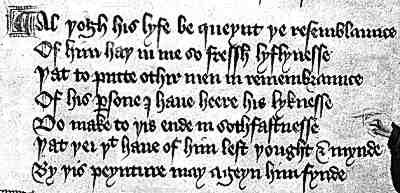 Al þogh his lyfe be queynt þe resemblaunce
Of him haþ in me so fressh lyflynesse
Þat to putte othir men in remembraunce
Of his ꝑsone I haue heere his lyknesse
Do make to þis ende in sothfastnesse
Þat þei þt haue of him lest þought & mynde
By þis peynture may ageyn him fynde